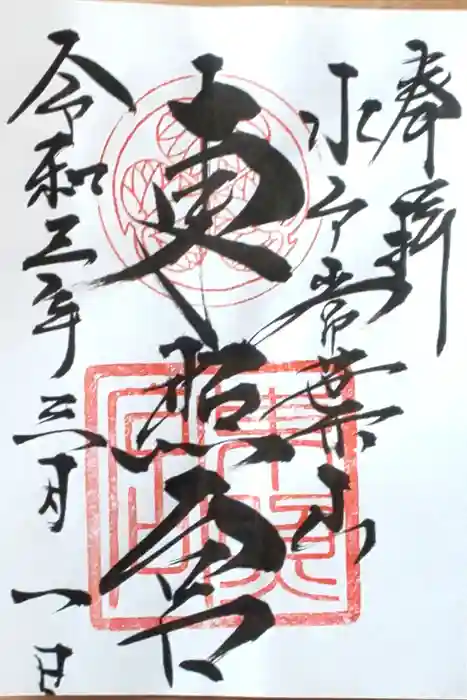 奉拝
水戸常葉山
東照宮
令和三年三月一日